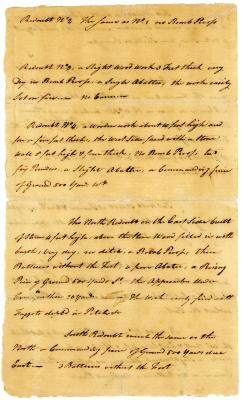 Redoubt No 2 The same as No 1 no Bomb Proofs
Redoubt No 3, a Slight Wood Work 3 Feet thick very
dry no Bomb Proofs a Single Abattis, the work easily
Set on fire — no Cannon
Redoubt No 4, a wooden work about 10 feet high and
four or five feet thick, the West Side faced with a stone
wall 8 feet high & four thick, no Bomb Proof, two
six Pounders, a Slight Abattis, a Commanding piece
of Ground 500 Yards Wt
The North Redoubt on the East Side built
of Stone 4 feet high, above the Stone Wood filled in with
Earth, Very dry, no ditch, a Bomb Proof, three
Batteries without the Fort, a poor Abattis, a Rising
Piece of Ground 500 yards So the Approaches Under
Cover within 20 Yards — The Work easily fired with
Faggots dipt in Pitch &c
South Redoubt much the same as the
North a Commanding piece of Ground 500 Yards due
East — 3 Batteries without the Fort